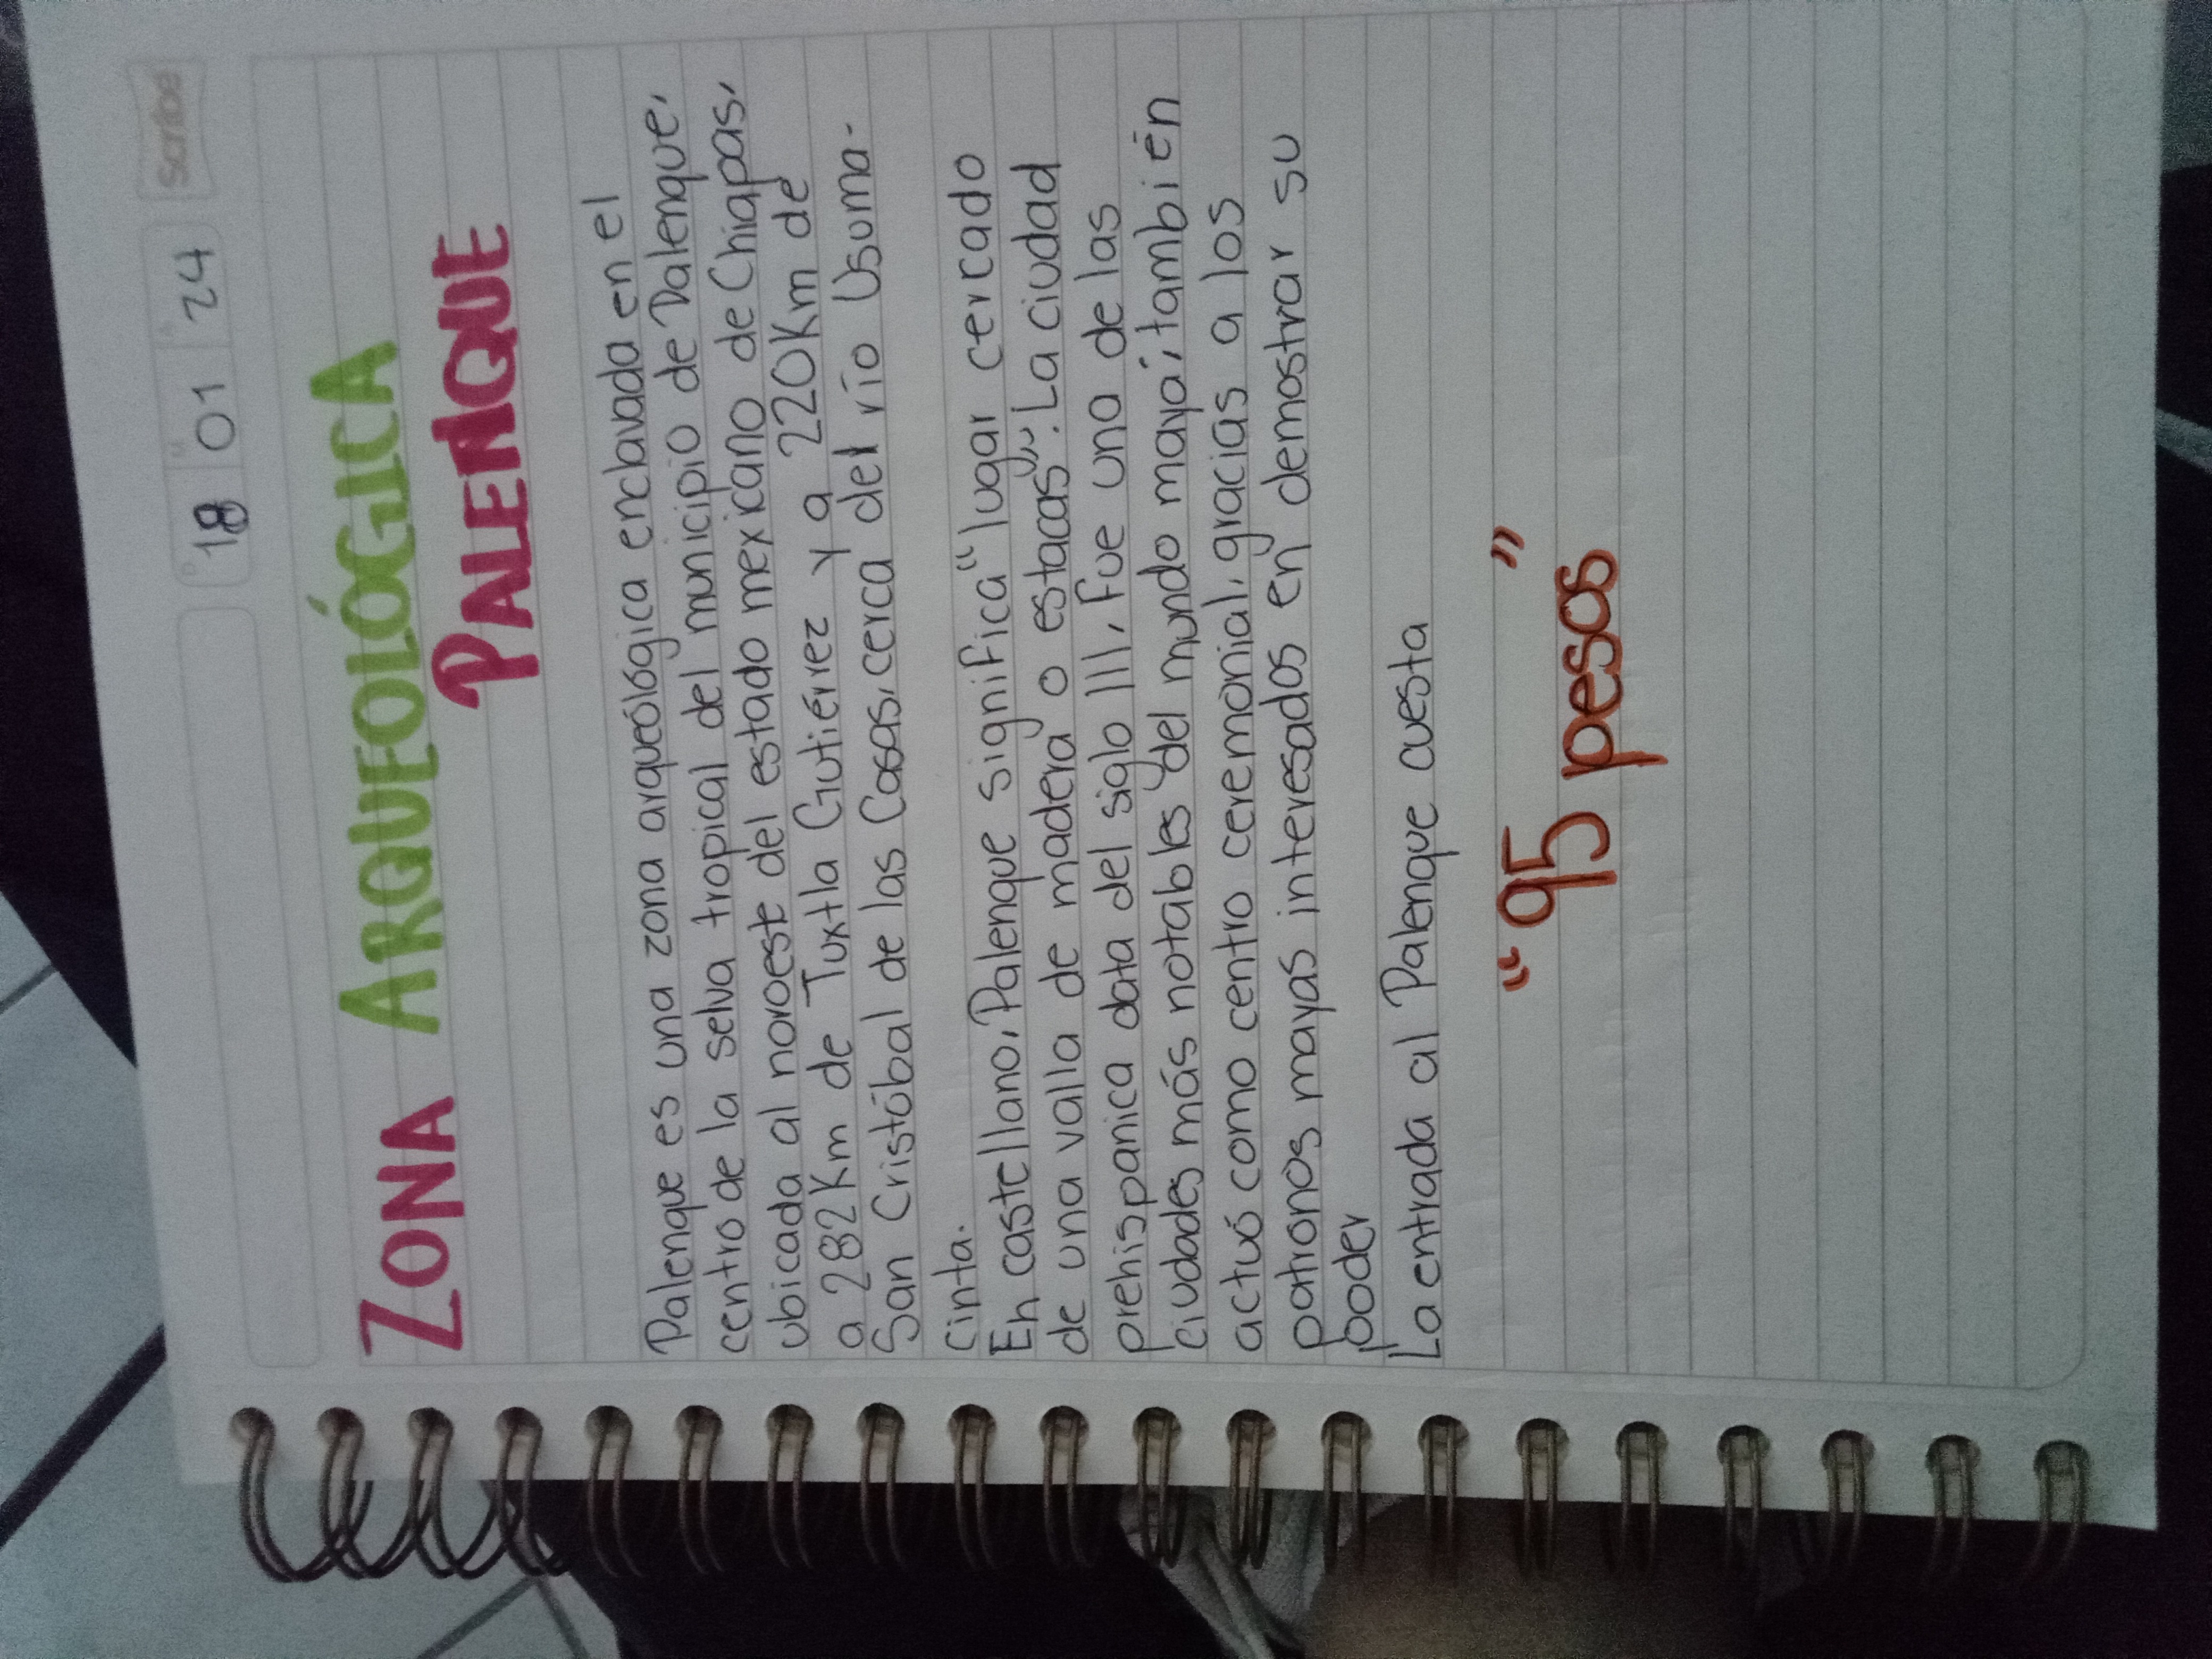 18 01 24 Scribe
ZONA ARQUEOLÓGICA
PALENQUE
Palenque es una zona arqueológica enclavada en el
centro de la selva tropical del municipio de Palenque,
ubicada al noroeste del estado mexicano de Chiapas,
a 282Km de Tuxtla Gutiérrez y a 220Km de
San Cristóbal de las Casas, cerca del río Usuma-
cinta.
En castellano, Palenque significa "lugar cercado
de una valla de madera o estacas". La ciudad
prehispanica data del siglo III, Fue una de las
ciudades más notables del mundo maya; también
actuó como centro ceremonial, gracias a los
patronos mayas interesados en demostrar su
poder
La entrada al Palenque cuesta
"95 pesos"